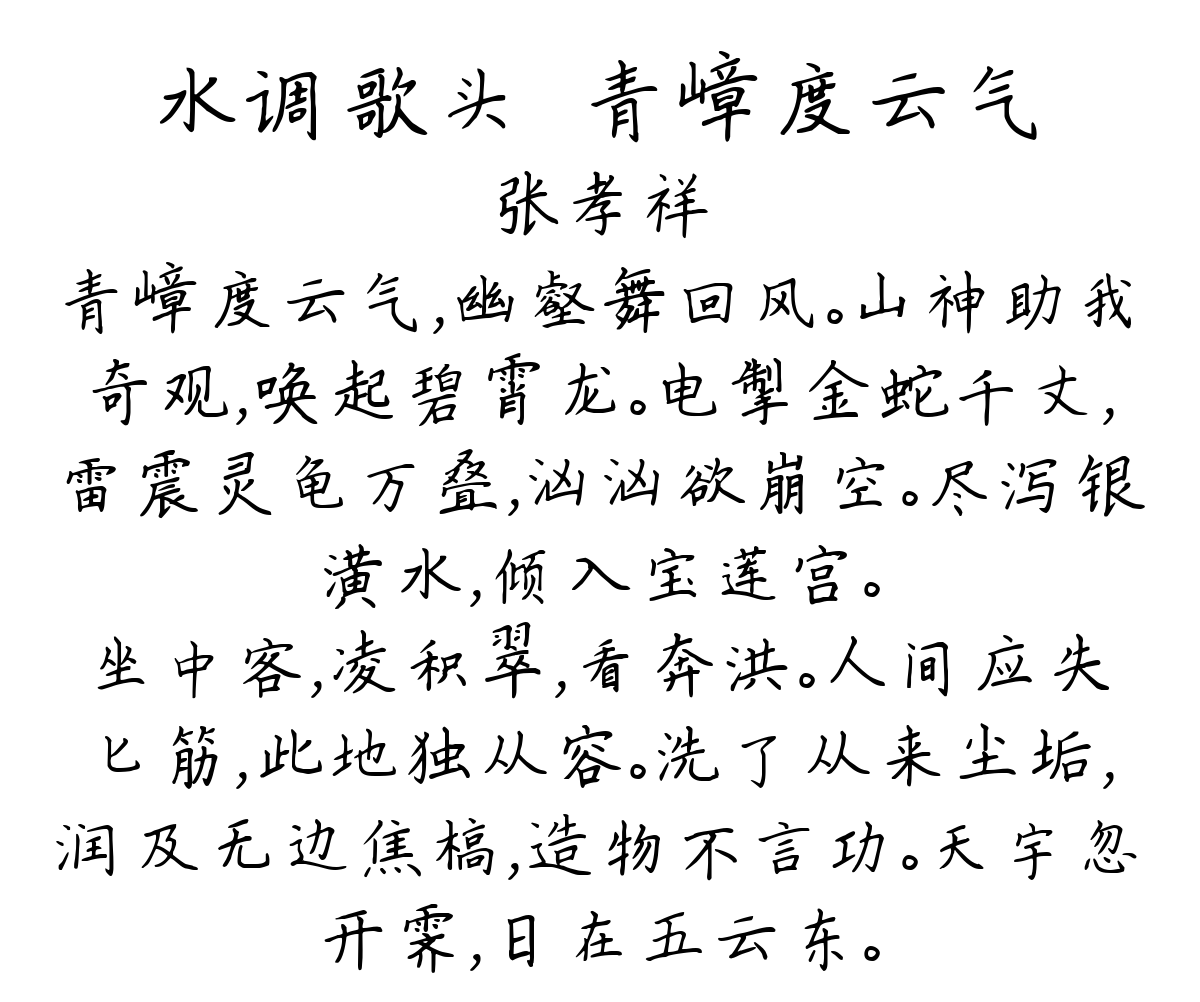 水调歌头 青嶂度云气
张孝祥
青嶂度云气,幽壑舞回风。山神助我
奇观,唤起碧霄龙。电掣金蛇千丈,
雷震灵龟万叠,汹汹欲崩空。尽泻银
潢水,倾入宝莲宫。
坐中客,凌积翠,看奔洪。人间应失
匕筯,此地独从容。洗了从来尘垢,
润及无边焦槁,造物不言功。天宇忽
开霁,日在五云东。